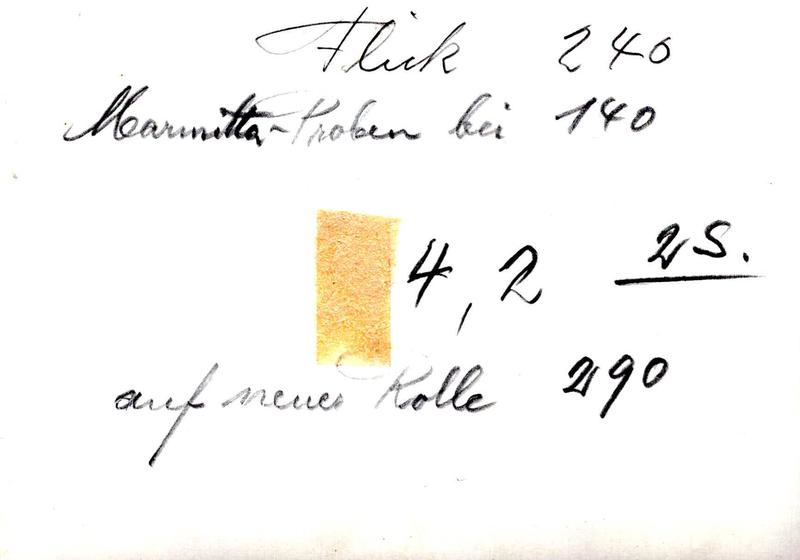 Flick 240
Marmitta-Proben bei 140
2S.
4,2
auf neuer Rolle 290